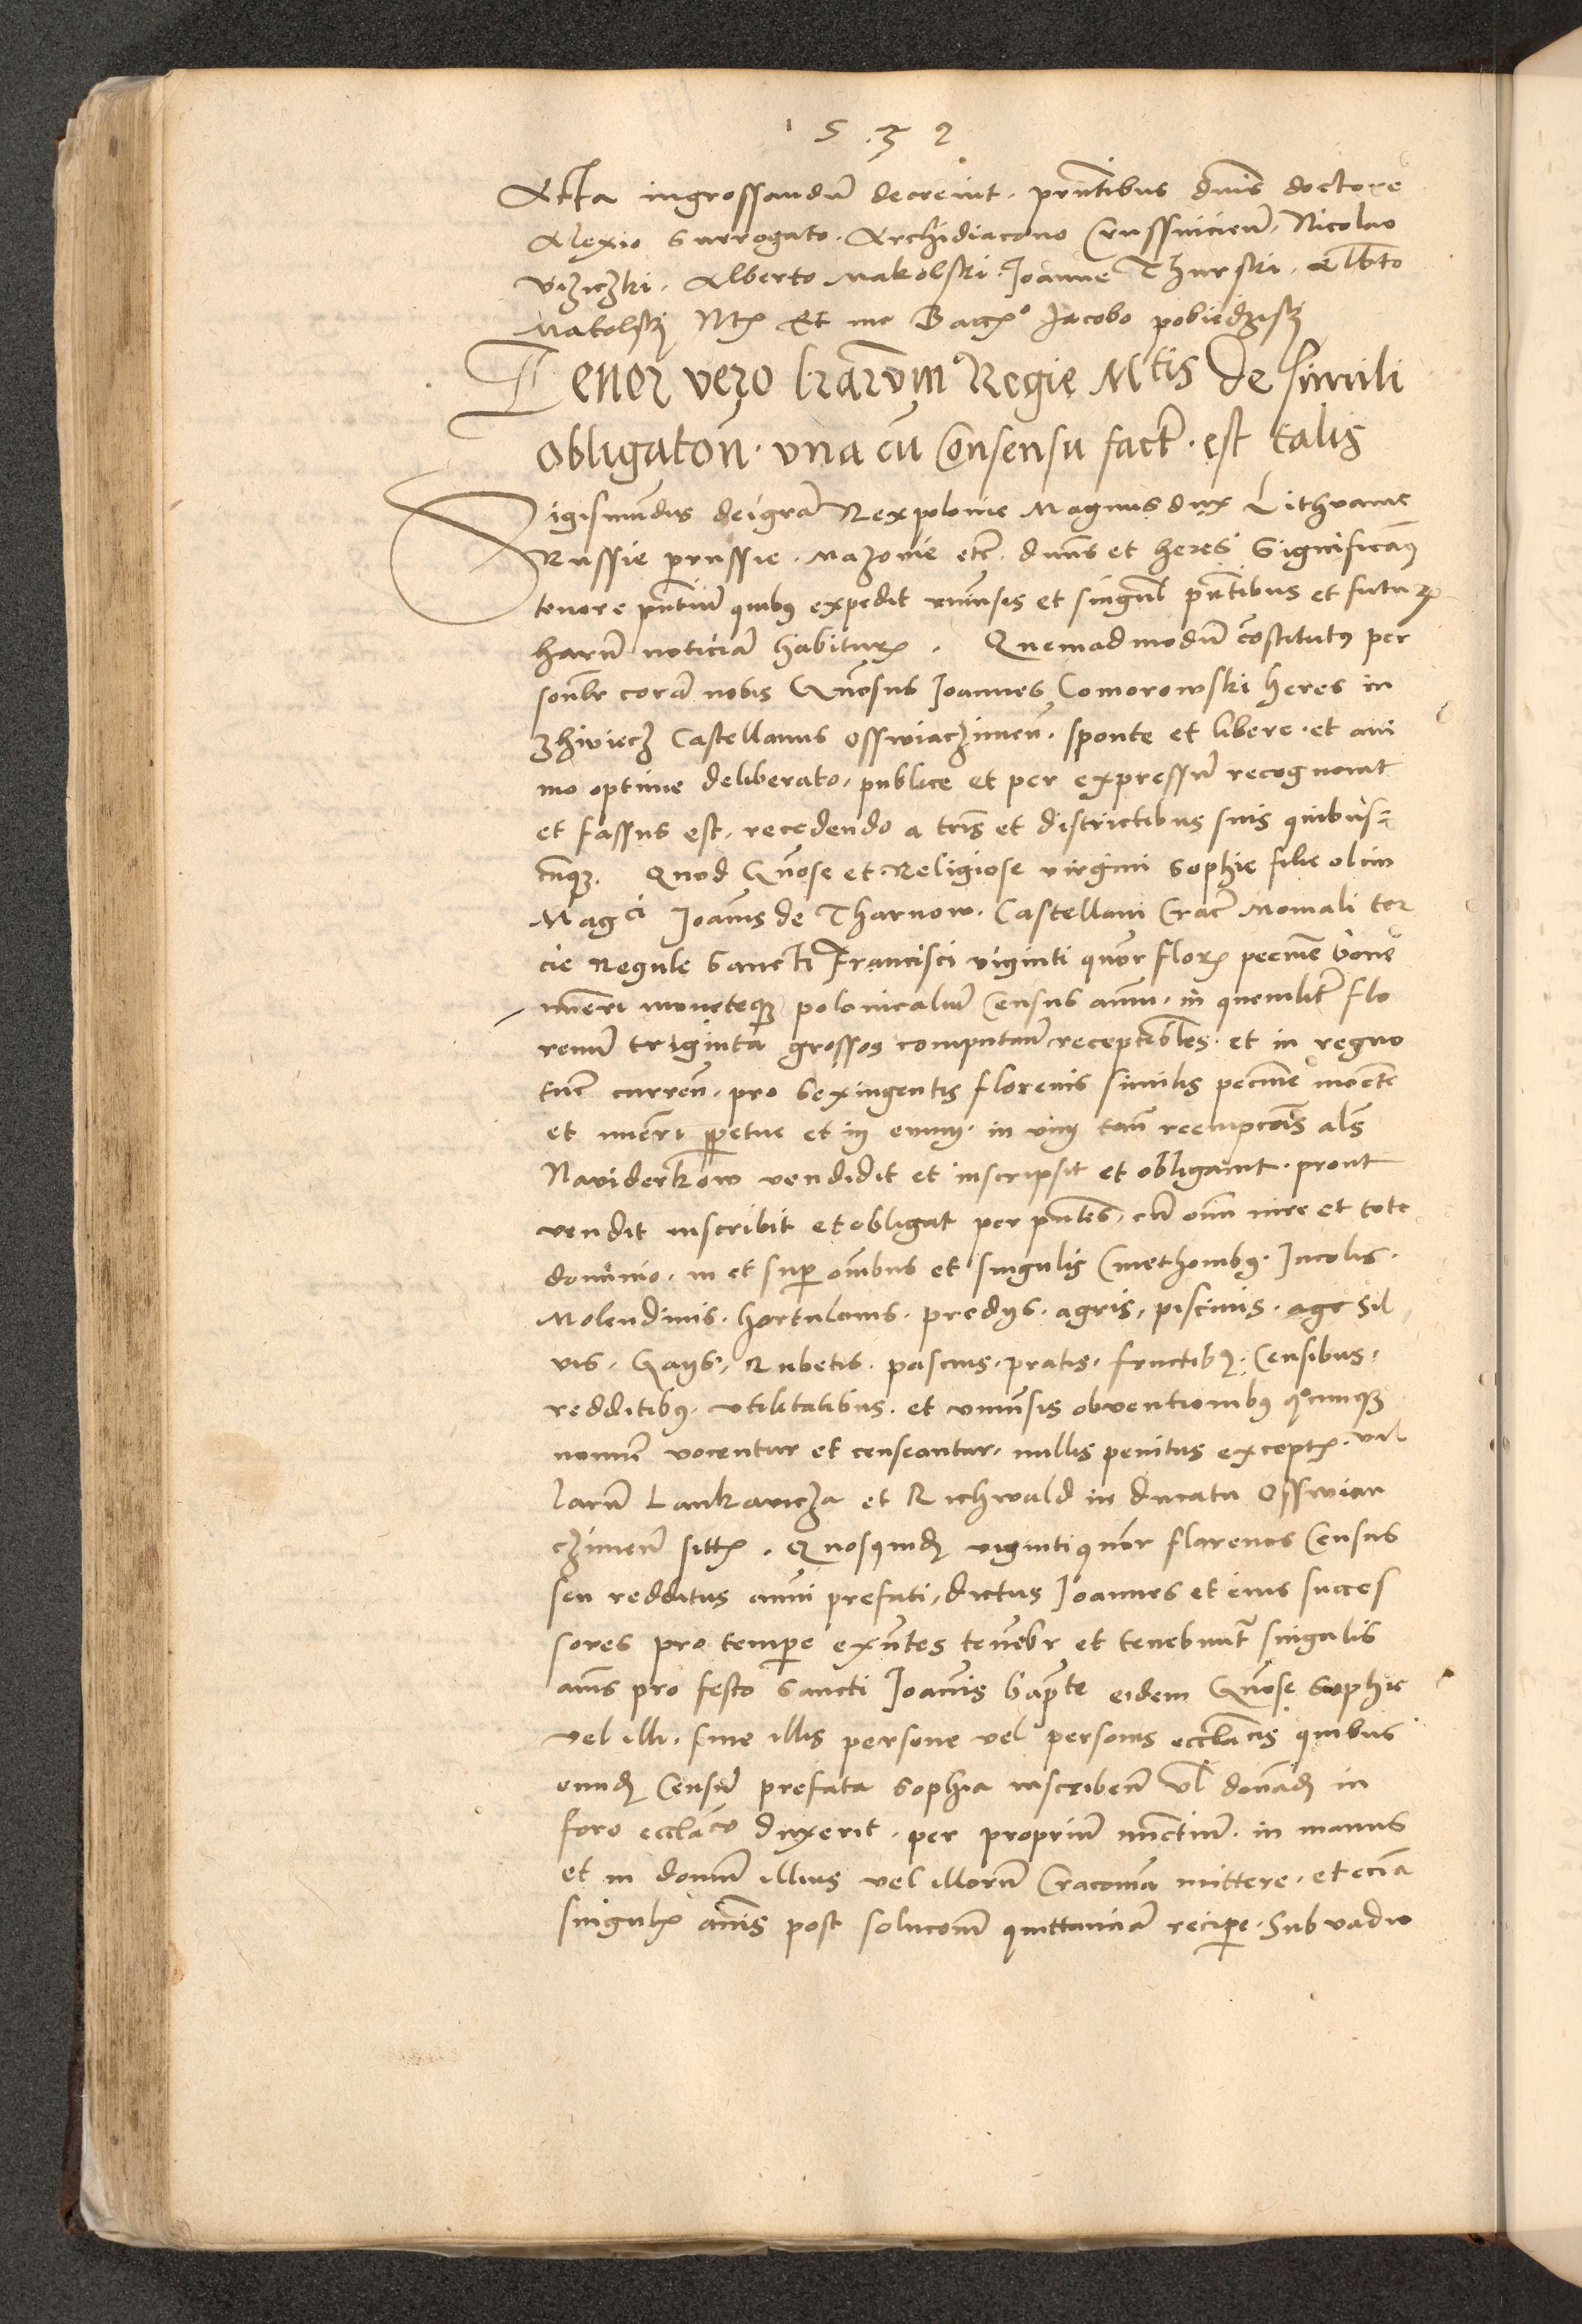 1532
Acta ingrossandū decreuit. prntibus dnis doctore
Alexio Surrogato. Archidiacono Crussuicieñ, Nicolao
Alberto Makolski. Joanne Thurski. Albto
Makolskj Et me Jacobo pobiedzjskj
Tenor vero lrarum Regie Mtis de simili
obligatoñ. vna cū Consensu fact. est talis
Sigismundus dei gra Rex polonie Magnus dux Lithuanie
Russie prussie. Mazouie etc. dnus et heres Significamꝰ
tenore pntium quibꝰ expedit vniusis et singul pntibus et futuꝝ
harū noticiā habiturꝝ. Quemadmodū costitutꝰ per
sonlr corā nobis Gnosus Joannes Comorowski heres in
Zhiviecz Castellanus Osswiaczimeñ. sponte et libere. et ani
mo optime deliberato. publice et per expressū recognouit
et fassus est. recedendo a tris et districtibus suis quibus=
cunqȝ. Quod Gnose et Religiose virgini Sophie filie olim
Magci Joanis de Tharnow. Castellani Crac Moniali ter
cie Regule Sancti Francisci viginti quor florꝝ pecunie bone
nueri moneteqȝ polonicaliū Census annui. in quemlibt flo
renū triginta grossos computañ receptibles. et in regno
tunc curreñ. pro Sexingentis florenis similis pecunie monete
et nueri ppetue et in euum. in vim tañ reempcois als
Naviderkow vendidit et inscripsit et obligauit. prout
vendit inscribit et obligat per pntes, cū omi iure et toto
dominio. in et sup omibus et singulis Cmethonibꝰ. Incolis.
Molendinis. hortulanis. predijs. agris, piscinis. Sil
vis. Gays, Rubetis. pascuis. pratis. fructibꝰ. Censibus.
redditibꝰ. vtilitatibus. et vniusis obventionibꝰ qocunqȝ
nomine vocentur et censeantur. nullis penitus exceptꝝ. vil
larū Lankavicza et Richwald in ducatu Osswian
czimeñ sittꝝ. Quosquidȝ vigintiquor florenos Census
seu redditus annui prefati, dictus Joannes et eius succes
sores pro tempe exntes tenebr et tenebuntr singulis
anis pro festo Sancti Joannis bapte eidem Gnose Sophie
vel illi. siue illis persone vel personis ecclacis quibus
eundȝ Censū prefata Sophia inscribeñ vl donandȝ in
foro ecclaco duxerit. per propriū nunctiū. in manus
et in domū illius vel illorū Cracouiā mittere. et eciā
singulꝝ anis post solucoem quittanciā recipe. Sub vadio